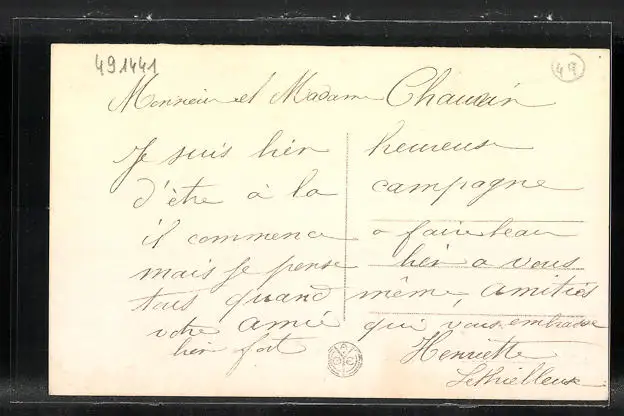 491441
49
Monsieur et Madame Chauvin
Je suis bien heureuse
d'être à la campagne
il commence a faire beau
mais je pense bien a vous
tous quand même, amitiés
votre amie qui vous embrasse
bien fort
Henriette